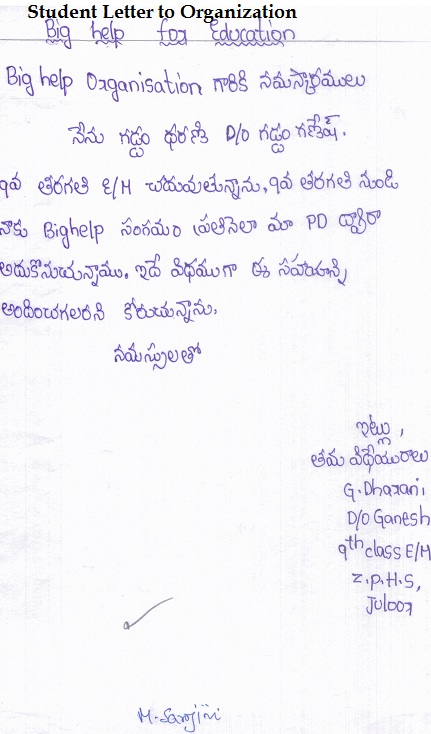 Student Letter to Organization
Big help for Education
Big help Organisation గారికి నమస్కారములు
నేను గడ్డం ధరణి D/O గడ్డం గణేష్.
9వ తరగతి E/M చదువుతున్నాను, 9వ తరగతి నుండి
నాకు Bighelp సంగమం ప్రతినెలా మా PD ద్వారా
అదుకొనుచున్నాము. ఇదే విధముగా ఈ సహాయాన్ని
అందించగలరని కోరుచున్నాను.
నమస్సులతో
ఇట్లు,
తమ విధేయురాలు
G. Dharani
D/O Ganesh
9th class E/M
Z.P.H.S,
Juloor
M. Sarojini